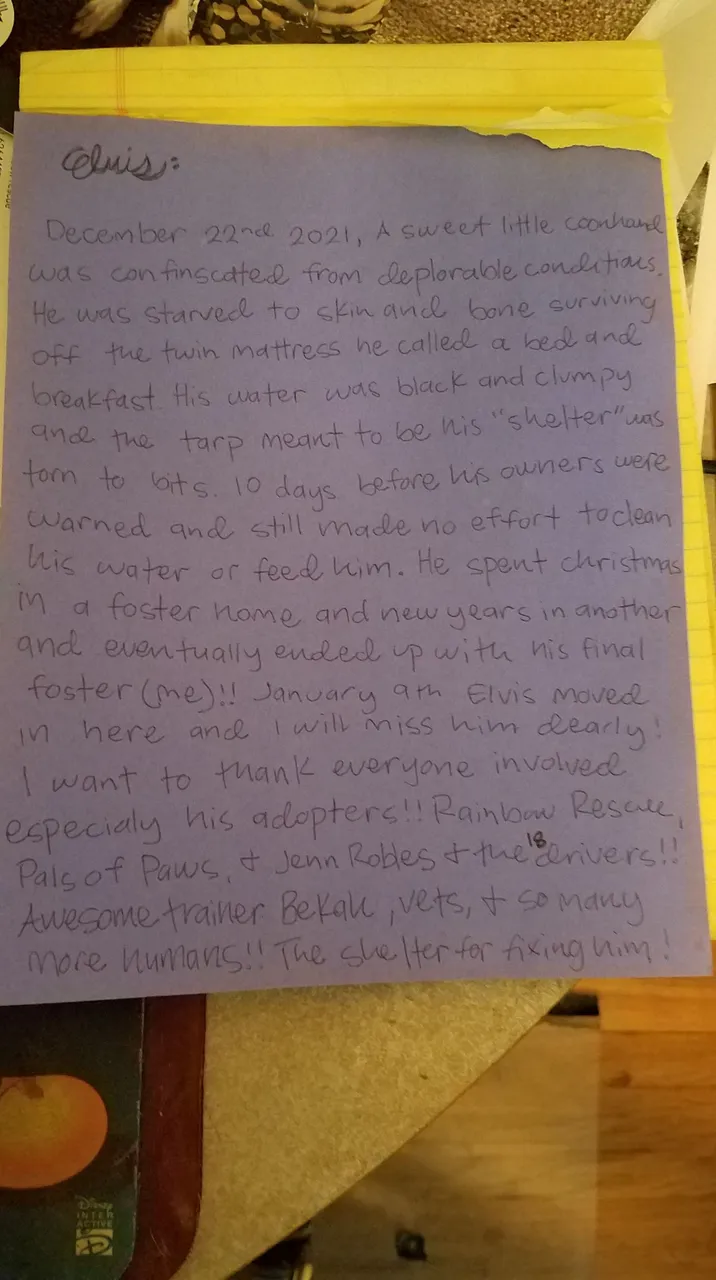 Elvis:
December 22nd 2021, A sweet little coonhand
was confinscated from deplorable conditions.
He was starved to skin and bone surviving
off the twin mattress he called a bed and
breakfast. His water was black and clumpy
and the tarp meant to be his "shelter" was
torn to bits. 10 days before his owners were
warned and still made no effort to clean
his water or feed him. He spent christmas
in a foster home and new years in another
and eventually ended up with his final
foster (me)!! January 9th Elvis moved
in here and I will miss him dearly!
I want to thank everyone involved
especialy his adopters!! Rainbow Rescue,
Pals of Paws, & Jenn Robles & the 18 drivers!!
Awesome trainer Bekah, vets, & so many
more humans!! The shelter for fixing him!
Disney
INTER
ACTIVE